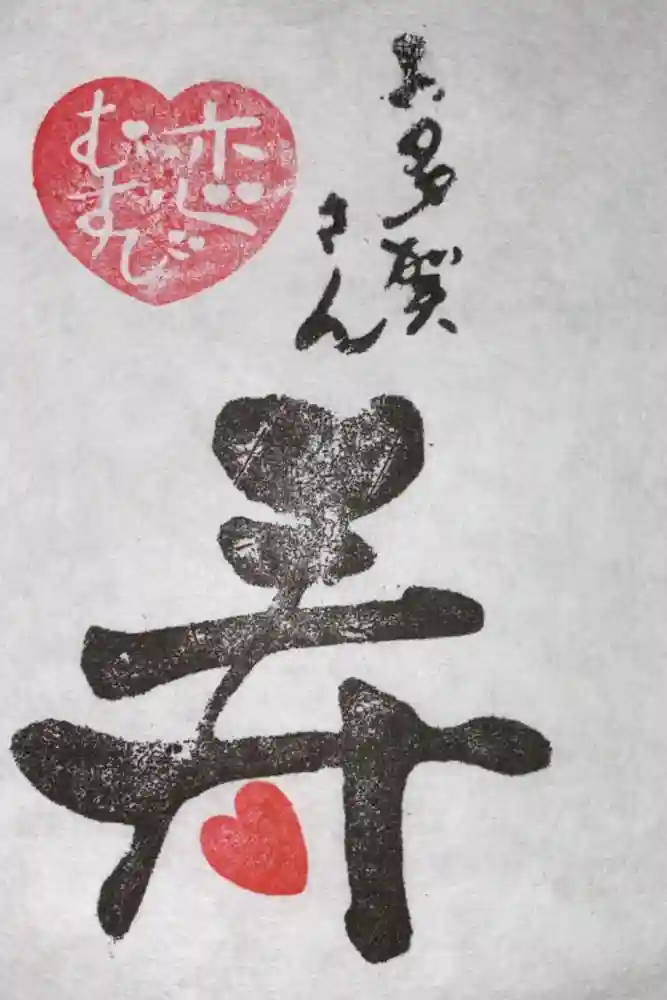 お多賀
さん
恋
むすび
寿